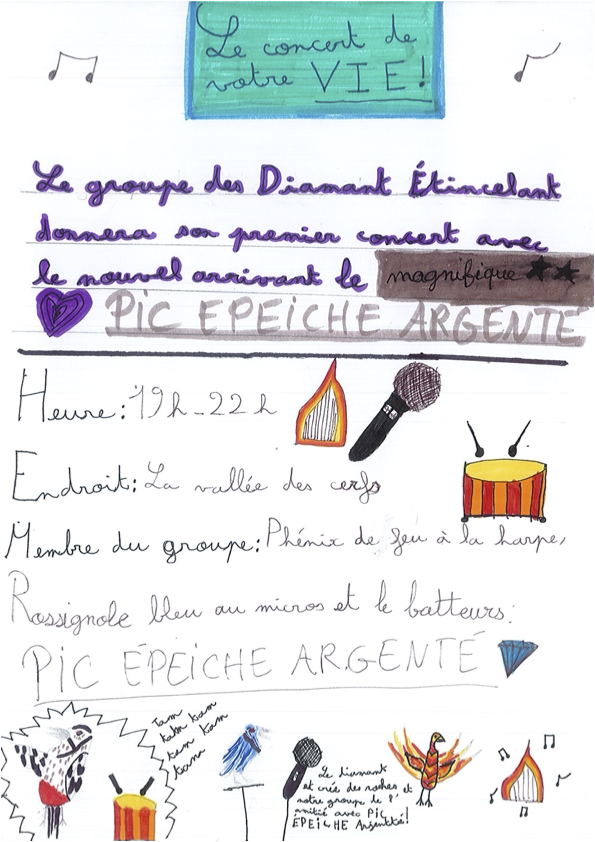 Le concert de
votre VIE!
Le groupe des Diamant Étincelant
donnera son premier concert avec
le nouvel arrivant le magnifique
PIC EPEICHE ARGENTÉ
Heure: 19h-22h
Endroit: La vallée des cerfs
Membre du groupe: Phénix de feu à la harpe,
Rossignole bleu au micros et le batteurs:
PIC ÉPEICHE ARGENTÉ
Tam
tam tam
tam tam
tam
Le diamant
et crés des roches et
notre groupe de l'
amitié avec PIC
ÉPEICHE Argentté!